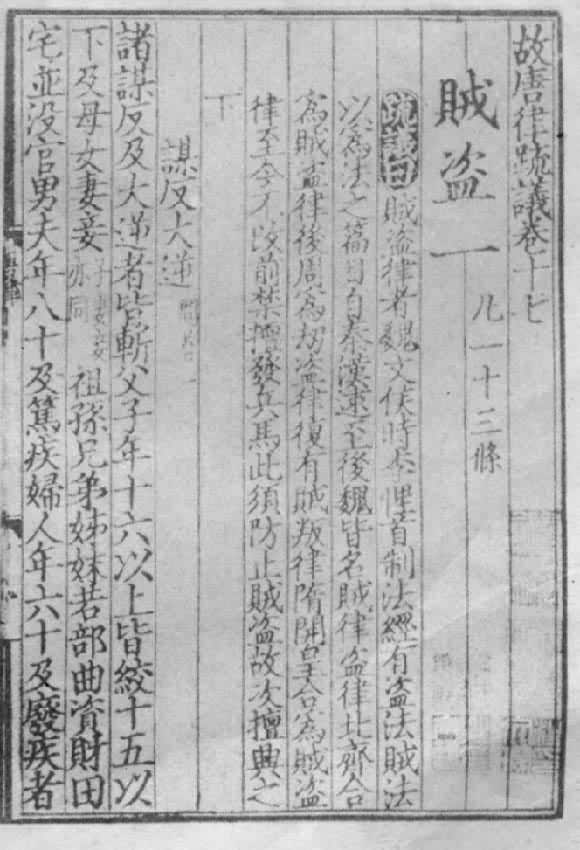 故唐律疏議卷十七
賊盗一
凡一十三條
疏議曰賊盗律者魏文侯時李悝首制法經有盗法賊法
以爲法之篇目自秦漢逮至後魏皆名賊律盗律北齊合
爲賊盗律後周爲劫盗律復有賊叛律隋開皇合爲賊盗
律至今不改前禁擅發兵馬此須防止賊盗故次擅興之
下
謀反大逆
諸謀反及大逆者皆斬父子年十六以上皆絞十五以
下及母女妻妾子妻妾亦同祖孫兄弟姊妹若部曲資財田
宅並没官男夫年八十及篤疾婦人年六十及廢疾者